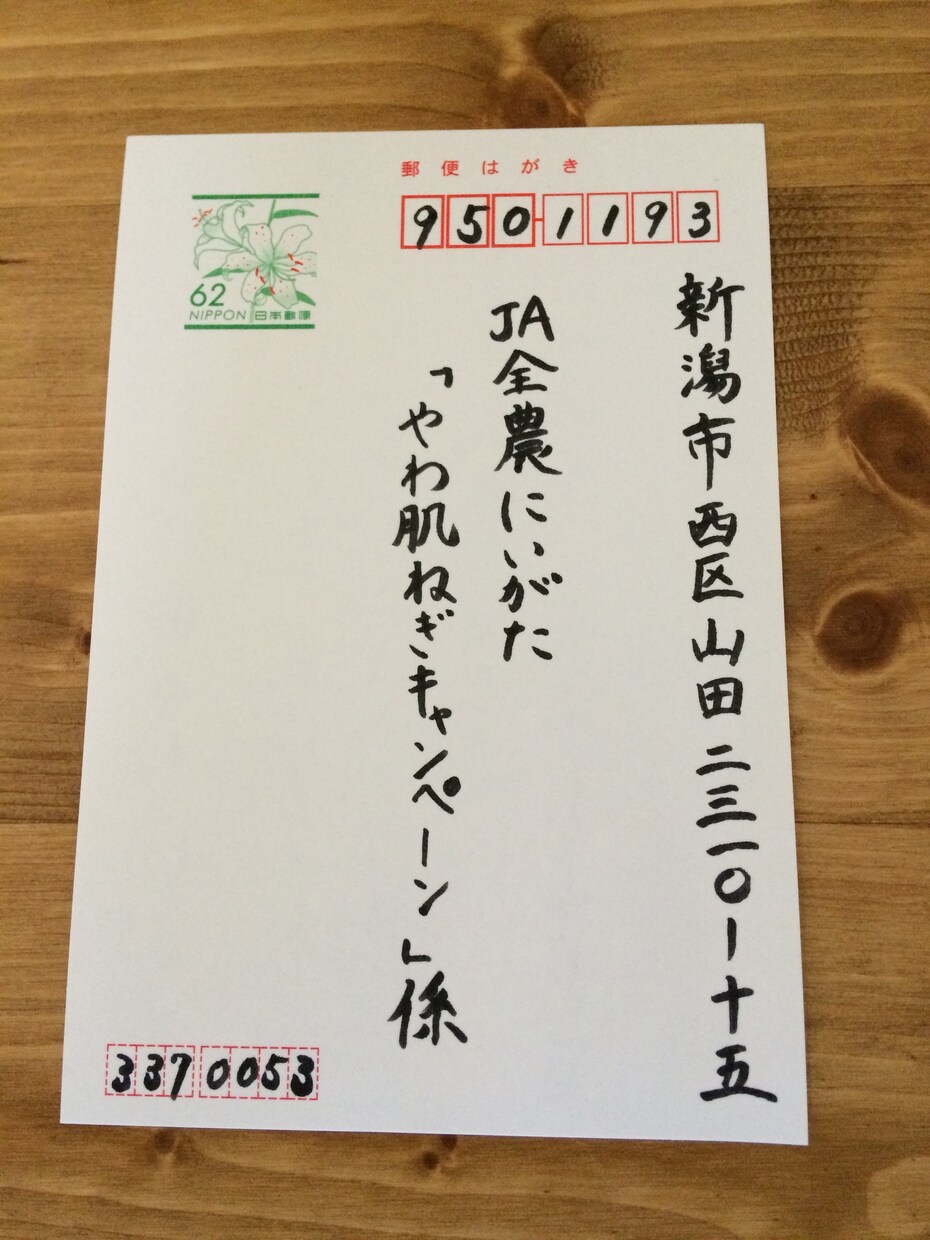 郵便はがき
950-1193
62
NIPPON 日本郵便
新潟市西区山田二三一〇ー十五
JA全農にいがた
「やわ肌ねぎキャンペーン」係
3370053